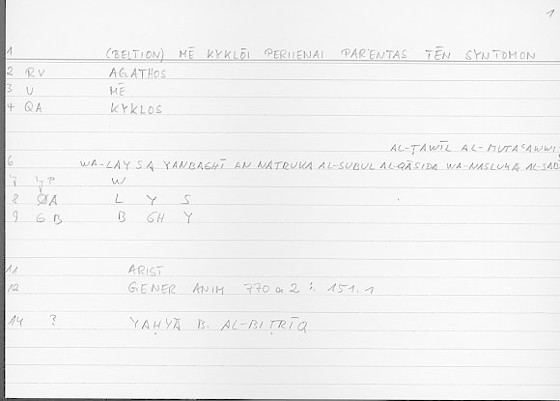 1
1 (BELTION) MĒ KYKLŌI PERIIENAI PARENTAS TĒN SYNTOMON
2 RV AGATHOS
3 U MĒ
4 QA KYKLOS
AL-ṬAWĪL AL-MUTAʿAWWIǦ
6 WA-LAYSA YANBAGHĪ AN NATRUKA AL-SUBUL AL-QĀṢIDA WA-NASLUKA
7 W
8 QA L Y S
9 GB B GH Y
11 ARIST
12 GENER ANIM 770 a 2 151.1
14 ? YAḤYĀ B. AL-BIṬRĪQ